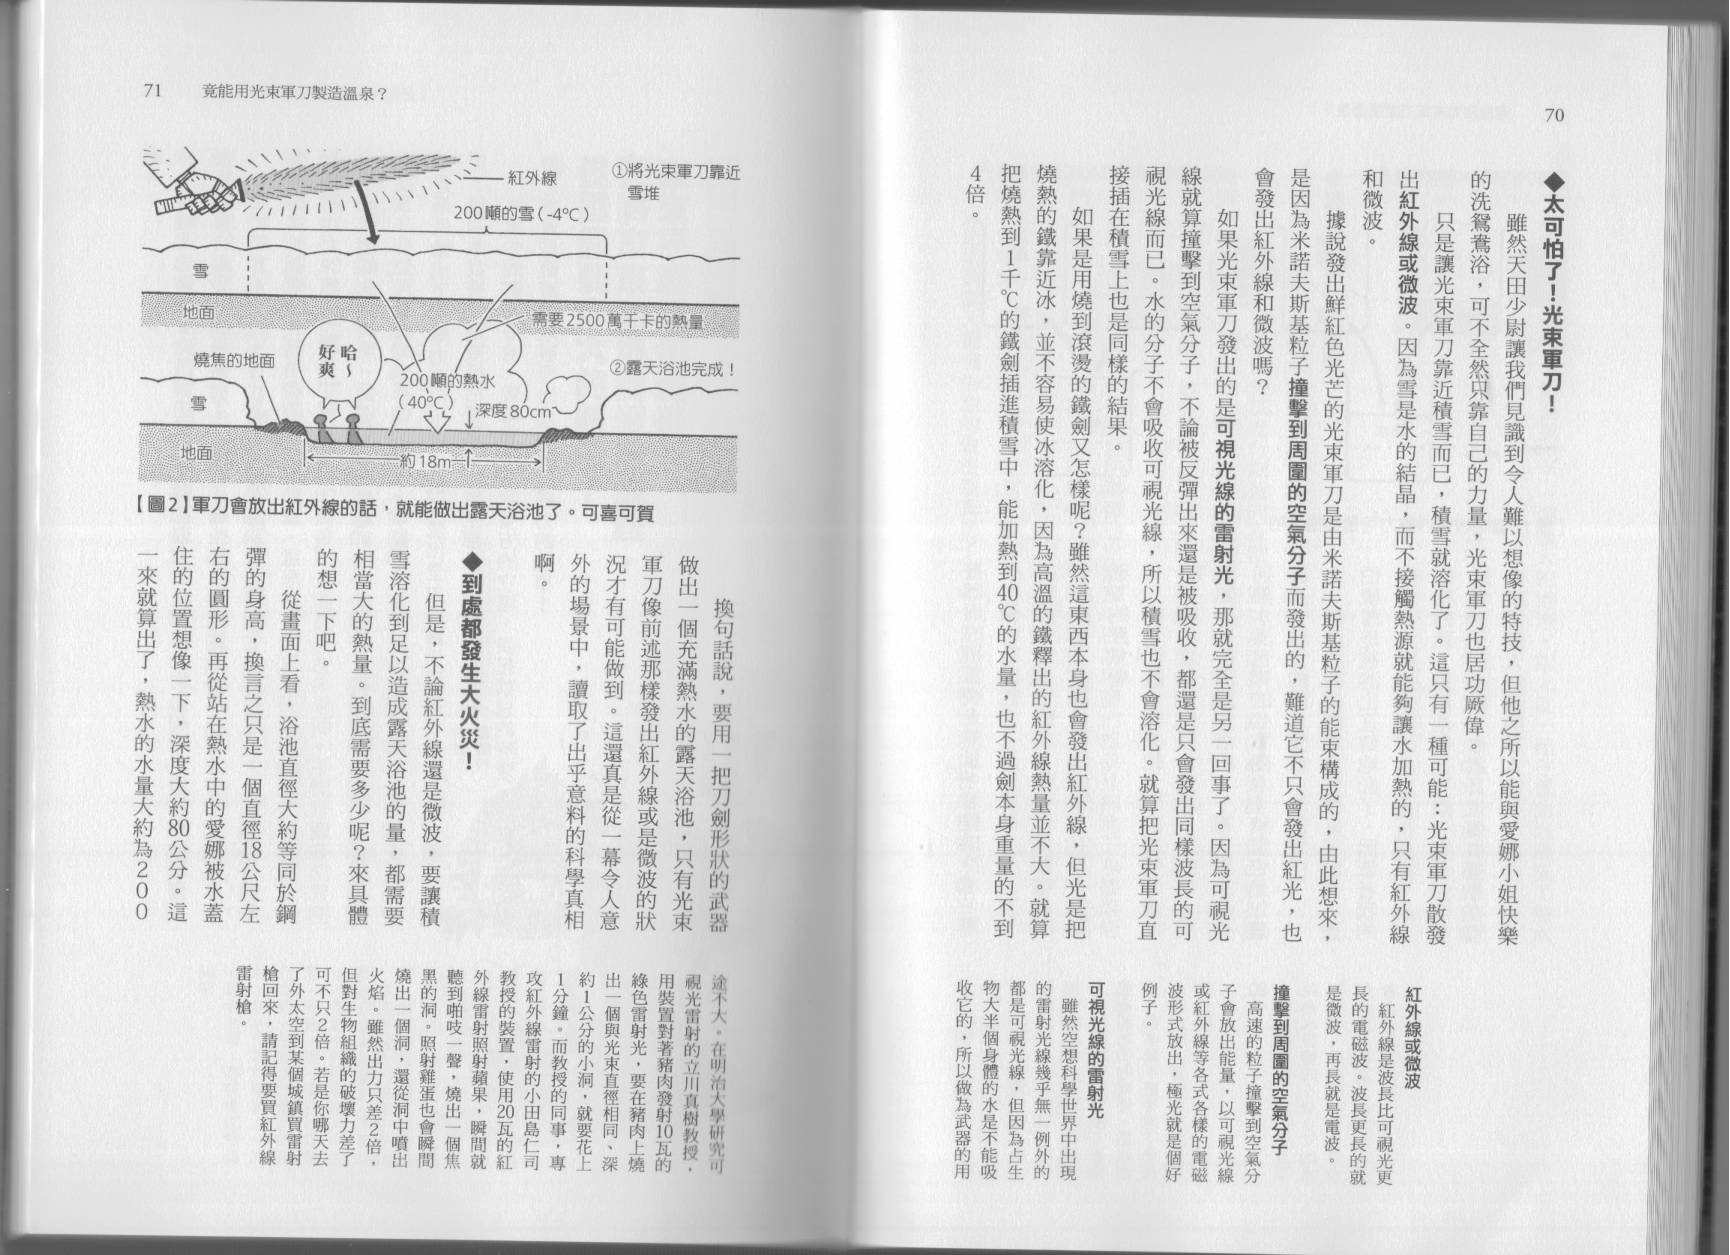 70
◆太可怕了！光束軍刀！
雖然天田少尉讓我們見識到令人難以想像的特技，但他之所以能與愛娜小姐快樂
的洗鴛鴦浴，可不全然只靠自己的力量，光束軍刀也居功厥偉。
只是讓光束軍刀靠近積雪而已，積雪就溶化了。這只有一種可能：光束軍刀散發
出紅外線或微波。因為雪是水的結晶，而不接觸熱源就能夠讓水加熱的，只有紅外線
和微波。
據說發出鮮紅色光芒的光束軍刀是由米諾夫斯基粒子的能束構成的，由此想來，
是因為米諾夫斯基粒子撞擊到周圍的空氣分子而發出的，難道它不只會發出紅光，也
會發出紅外線和微波嗎？
如果光束軍刀發出的是可視光線的雷射光，那就完全是另一回事了。因為可視光
線就算撞擊到空氣分子，不論被反彈出來還是被吸收，都還是只會發出同樣波長的可
視光線而已。水的分子不會吸收可視光線，所以積雪也不會溶化。就算把光束軍刀直
接插在積雪上也是同樣的結果。
如果是用燒到滾燙的鐵劍又怎樣呢？雖然這東西本身也會發出紅外線，但光是把
燒熱的鐵靠近冰，並不容易使冰溶化，因為高溫的鐵釋出的紅外線熱量並不大。就算
把燒熱到1千℃的鐵劍插進積雪中，能加熱到40℃的水量，也不過劍本身重量的不到
4倍。
紅外線或微波
紅外線是波長比可視光更
長的電磁波。波長更長的就
是微波，再長就是電波。
撞擊到周圍的空氣分子
高速的粒子撞擊到空氣分
子會放出能量，以可視光線
或紅外線等各式各樣的電磁
波形式放出，極光就是個好
例子。
可視光線的雷射光
雖然空想科學世界中出現
的雷射光線幾乎無一例外的
都是可視光線，但因為占生
物大半個身體的水是不能吸
收它的，所以做為武器的用
71 竟能用光束軍刀製造溫泉？
①將光束軍刀靠近
雪堆
紅外線
200噸的雪(-4℃)
雪
地面
需要2500萬千卡的熱量
燒焦的地面
哈～
好爽
②露天浴池完成！
200噸的熱水
(40℃)
深度80cm
雪
地面
約18m
【圖2】軍刀會放出紅外線的話，就能做出露天浴池了。可喜可賀
換句話說，要用一把刀劍形狀的武器
做出一個充滿熱水的露天浴池，只有光束
軍刀像前述那樣發出紅外線或是微波的狀
況才有可能做到。這還真是從一幕令人意
外的場景中，讀取了出乎意料的科學真相
啊。
◆到處都發生大火災！
但是，不論紅外線還是微波，要讓積
雪溶化到足以造成露天浴池的量，都需要
相當大的熱量。到底需要多少呢？來具體
的想一下吧。
從畫面上看，浴池直徑大約等同於鋼
彈的身高，換言之只是一個直徑18公尺左
右的圓形。再從站在熱水中的愛娜被水蓋
住的位置想像一下，深度大約80公分。這
一來就算出了，熱水的水量大約為200
途不大。在明治大學研究可
視光雷射的立川真樹教授，
用裝置對著豬肉發射10瓦的
綠色雷射光，要在豬肉上燒
出一個與光束直徑相同、深
約1公分的小洞，就要花上
1分鐘。而教授的同事，專
攻紅外線雷射的小田島仁司
教授的裝置，使用20瓦的紅
外線雷射照射蘋果，瞬間就
聽到啪吱一聲，燒出一個焦
黑的洞。照射雞蛋也會瞬間
燒出一個洞，還從洞中噴出
火焰。雖然出力只差2倍，
但對生物組織的破壞力差了
可不只2倍。若是你哪天去
了外太空到某個城鎮買雷射
槍回來，請記得要買紅外線
雷射槍。